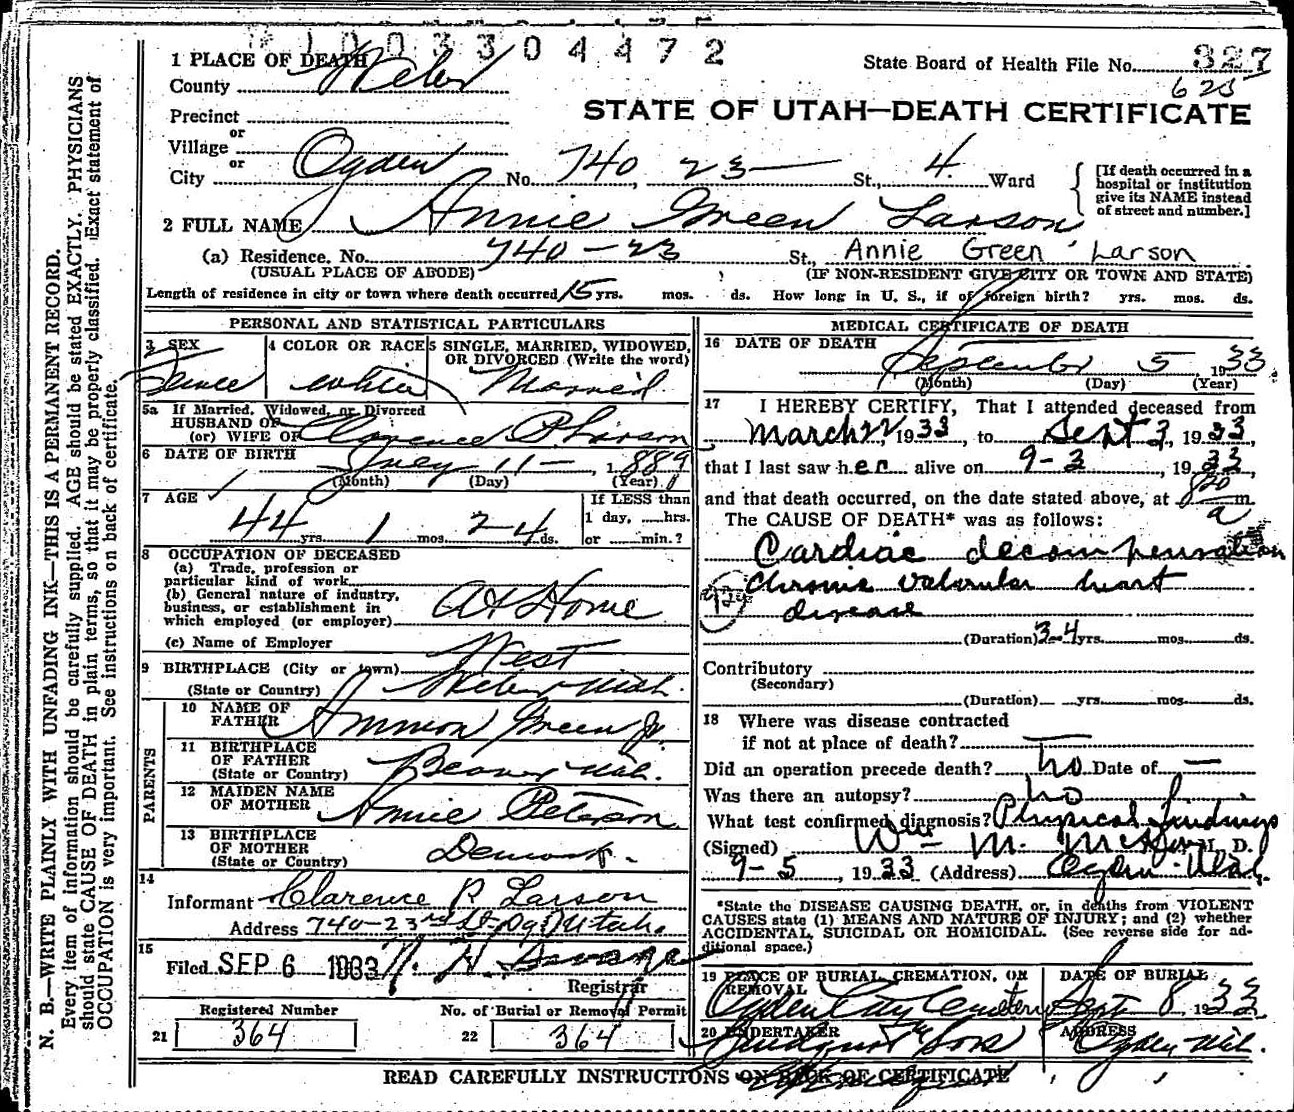 1003304472
1 PLACE OF DEATH
County Weber
State Board of Health File No. 327
625
STATE OF UTAH—DEATH CERTIFICATE
Precinct
or
Village
or
City Ogden No. 740 23 St., 4 Ward
[If death occurred in a hospital or institution give its NAME instead of street and number.]
2 FULL NAME Annie Green Larson
(a) Residence. No. 740-23 St., Annie Green Larson
(USUAL PLACE OF ABODE) (IF NON-RESIDENT GIVE CITY OR TOWN AND STATE)
Length of residence in city or town where death occurred 15 yrs. mos. ds. How long in U. S., if of foreign birth? yrs. mos. ds.
N. B.—WRITE PLAINLY WITH UNFADING INK—THIS IS A PERMANENT RECORD.
Every item of information should be carefully supplied. AGE should be stated EXACTLY. PHYSICIANS
should state CAUSE OF DEATH in plain terms, so that it may be properly classified. Exact statement of
OCCUPATION is very important. See instructions on back of certificate.
PERSONAL AND STATISTICAL PARTICULARS
3 SEX 4 COLOR OR RACE 5 SINGLE, MARRIED, WIDOWED, OR DIVORCED (Write the word)
Female white Married
5a If Married, Widowed, or Divorced
HUSBAND OF
(or) WIFE OF Clarence P Larson
6 DATE OF BIRTH July 11 — , 1889
(Month) (Day) (Year)
7 AGE 44 yrs. 1 mos. 24 ds.
If LESS than
1 day, hrs.
or min.?
8 OCCUPATION OF DECEASED
(a) Trade, profession or
particular kind of work
(b) General nature of industry,
business, or establishment in
which employed (or employer) At Home
(c) Name of Employer
9 BIRTHPLACE (City or town) West
(State or Country) Weber Utah.
PARENTS
10 NAME OF FATHER Ammon Green Jr.
11 BIRTHPLACE OF FATHER (State or Country) Beaver Utah.
12 MAIDEN NAME OF MOTHER Annie Peterson
13 BIRTHPLACE OF MOTHER (State or Country) Denmark.
14
Informant Clarence P. Larson
Address 740-23rd St. Og. Utah.
15
Filed SEP 6 1933
Registrar
Registered Number No. of Burial or Removal Permit
21 364 22 364
MEDICAL CERTIFICATE OF DEATH
16 DATE OF DEATH
September 5 , 1933
(Month) (Day) (Year)
17 I HEREBY CERTIFY, That I attended deceased from
March 22, 1933, to Sept 3, 1933
that I last saw her alive on 9-3, 1933
and that death occurred, on the date stated above, at 820 a m.
The CAUSE OF DEATH* was as follows:
Cardiac decompensation
Chronic valvular heart
disease
(Duration) 3-4 yrs. mos. ds.
Contributory
(Secondary)
(Duration) yrs. mos. ds.
18 Where was disease contracted
if not at place of death? —
Did an operation precede death? no Date of —
Was there an autopsy? no
What test confirmed diagnosis? Physical findings
(Signed) Wm M. M. D.
9-5, 1933 (Address) Ogden Utah.
*State the DISEASE CAUSING DEATH, or, in deaths from VIOLENT
CAUSES state (1) MEANS AND NATURE OF INJURY; and (2) whether
ACCIDENTAL, SUICIDAL OR HOMICIDAL. (See reverse side for ad-
ditional space.)
19 PLACE OF BURIAL, CREMATION, OR REMOVAL DATE OF BURIAL
Ogden City Cemetery Sept 8 1933
20 UNDERTAKER ADDRESS
Lindquist & Sons Ogden Utah.
READ CAREFULLY INSTRUCTIONS ON BACK OF CERTIFICATE